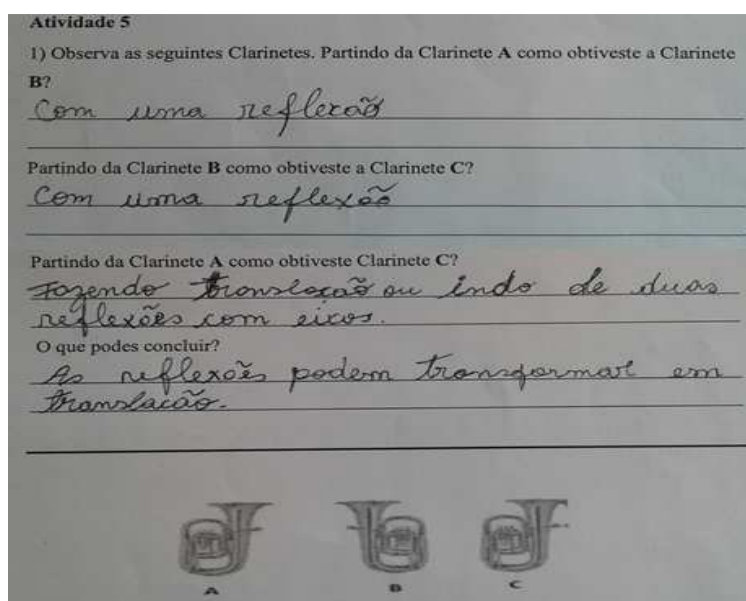 Atividade 5
1) Observa as seguintes Clarinetes. Partindo da Clarinete A como obtiveste a Clarinete
B?
Com uma reflexão
Partindo da Clarinete B como obtiveste a Clarinete C?
Com uma reflexão
Partindo da Clarinete A como obtiveste Clarinete C?
Fazendo translação ou indo de duas
reflexões com eixos.
O que podes concluir?
As reflexões podem transformar em
translação.
A B C